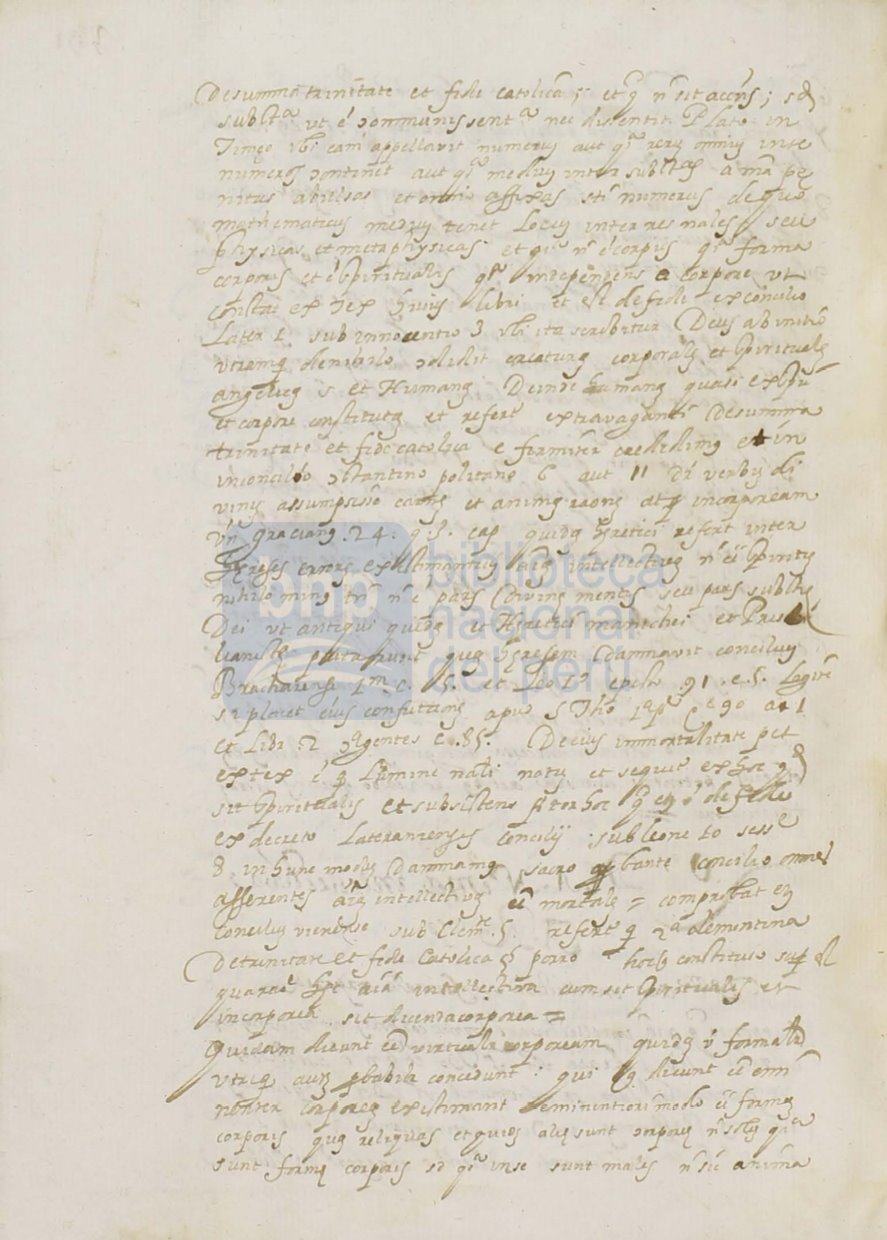 De summa trinitate et fide catolica; et q n sit accns; sd
subst.ª ut é communis sent.ª nec disentit Plato in
Timeo ubi eam appellavit numerus aut qª rerum omniu inte
numeros continet aut qª medius inter subtas a mã pe
nitus abulsas et affixas sti numerus de quo
mathematicus medius tenet locus inter res nales seu
physicas et metaphysicas et qª n é corpus qª forma
corporis et é spiritualis qª independens a corpore ut
constat ex tex huius libri et est de fide ex concilio
Later 1. sub innocentio 3 ubi ita scribitur Deus ab initio
utramq de nihilo condidit creatura corporale et spirituale
angelicã s et Humanã. Deinde humanã quasi ex spu
et corpore constituta et refert extravaganti De summa
trinitate et fide catolica c firmiter credidimus et in
in concilio constantino politano 6 aut 11 Dr verbis di
vinis assumpsisse carne et anima raons atq incorpoream
Un Gracianus .24. q.3. cap quidã heretici refert inter
hereses errore existimantiu aia intellectiva n eé spiritu
nihilo minus tn n é pars divine mentis seu pars substã
Dei ut antiqui quidã et Heretici manichei et Prisci
lianiste putarunt quã heresem Dammavit conciliu
Bracharense 1m c. 5. et Leo 1º epistª 91 .c.5. Legite
si placet eius confutations apu S Tho 1ªpe qe 90 a 1
et Libr 2 congentes c .85. De eius immortalitate pct
ex tex é q Lumine nali notu et sequit ex hoc qd
sit spiritualis et subsistens ptor hoc q eu é de fide
ex decreto Lateranensis concilij sub leone 10 sess.e
8 in hunc modu Dammamus sacro approbante concilio omnes
asserentes aiã intellectivã eé mortale = comprobat eu
conciliu vienense sub Clemte .5. refert q 2ª clementina
De trinitate et fide catolica § porro hoc constituto sup est
quarere hec aiã intellectiva cum sit spiritualis et
incorporea sit dicenda corporea =
Quidam dicunt eé virtualr corpoream quidã v formalr
utriq aut probabilr concidunt: qui q dicunt eé emi
nenter corporeã existimant eminentiori modo eé formã
corporis quã reliquas et quidã alie sunt corporeæ n solu qª
sunt forme corporis sd qª in se sunt males n sic anima